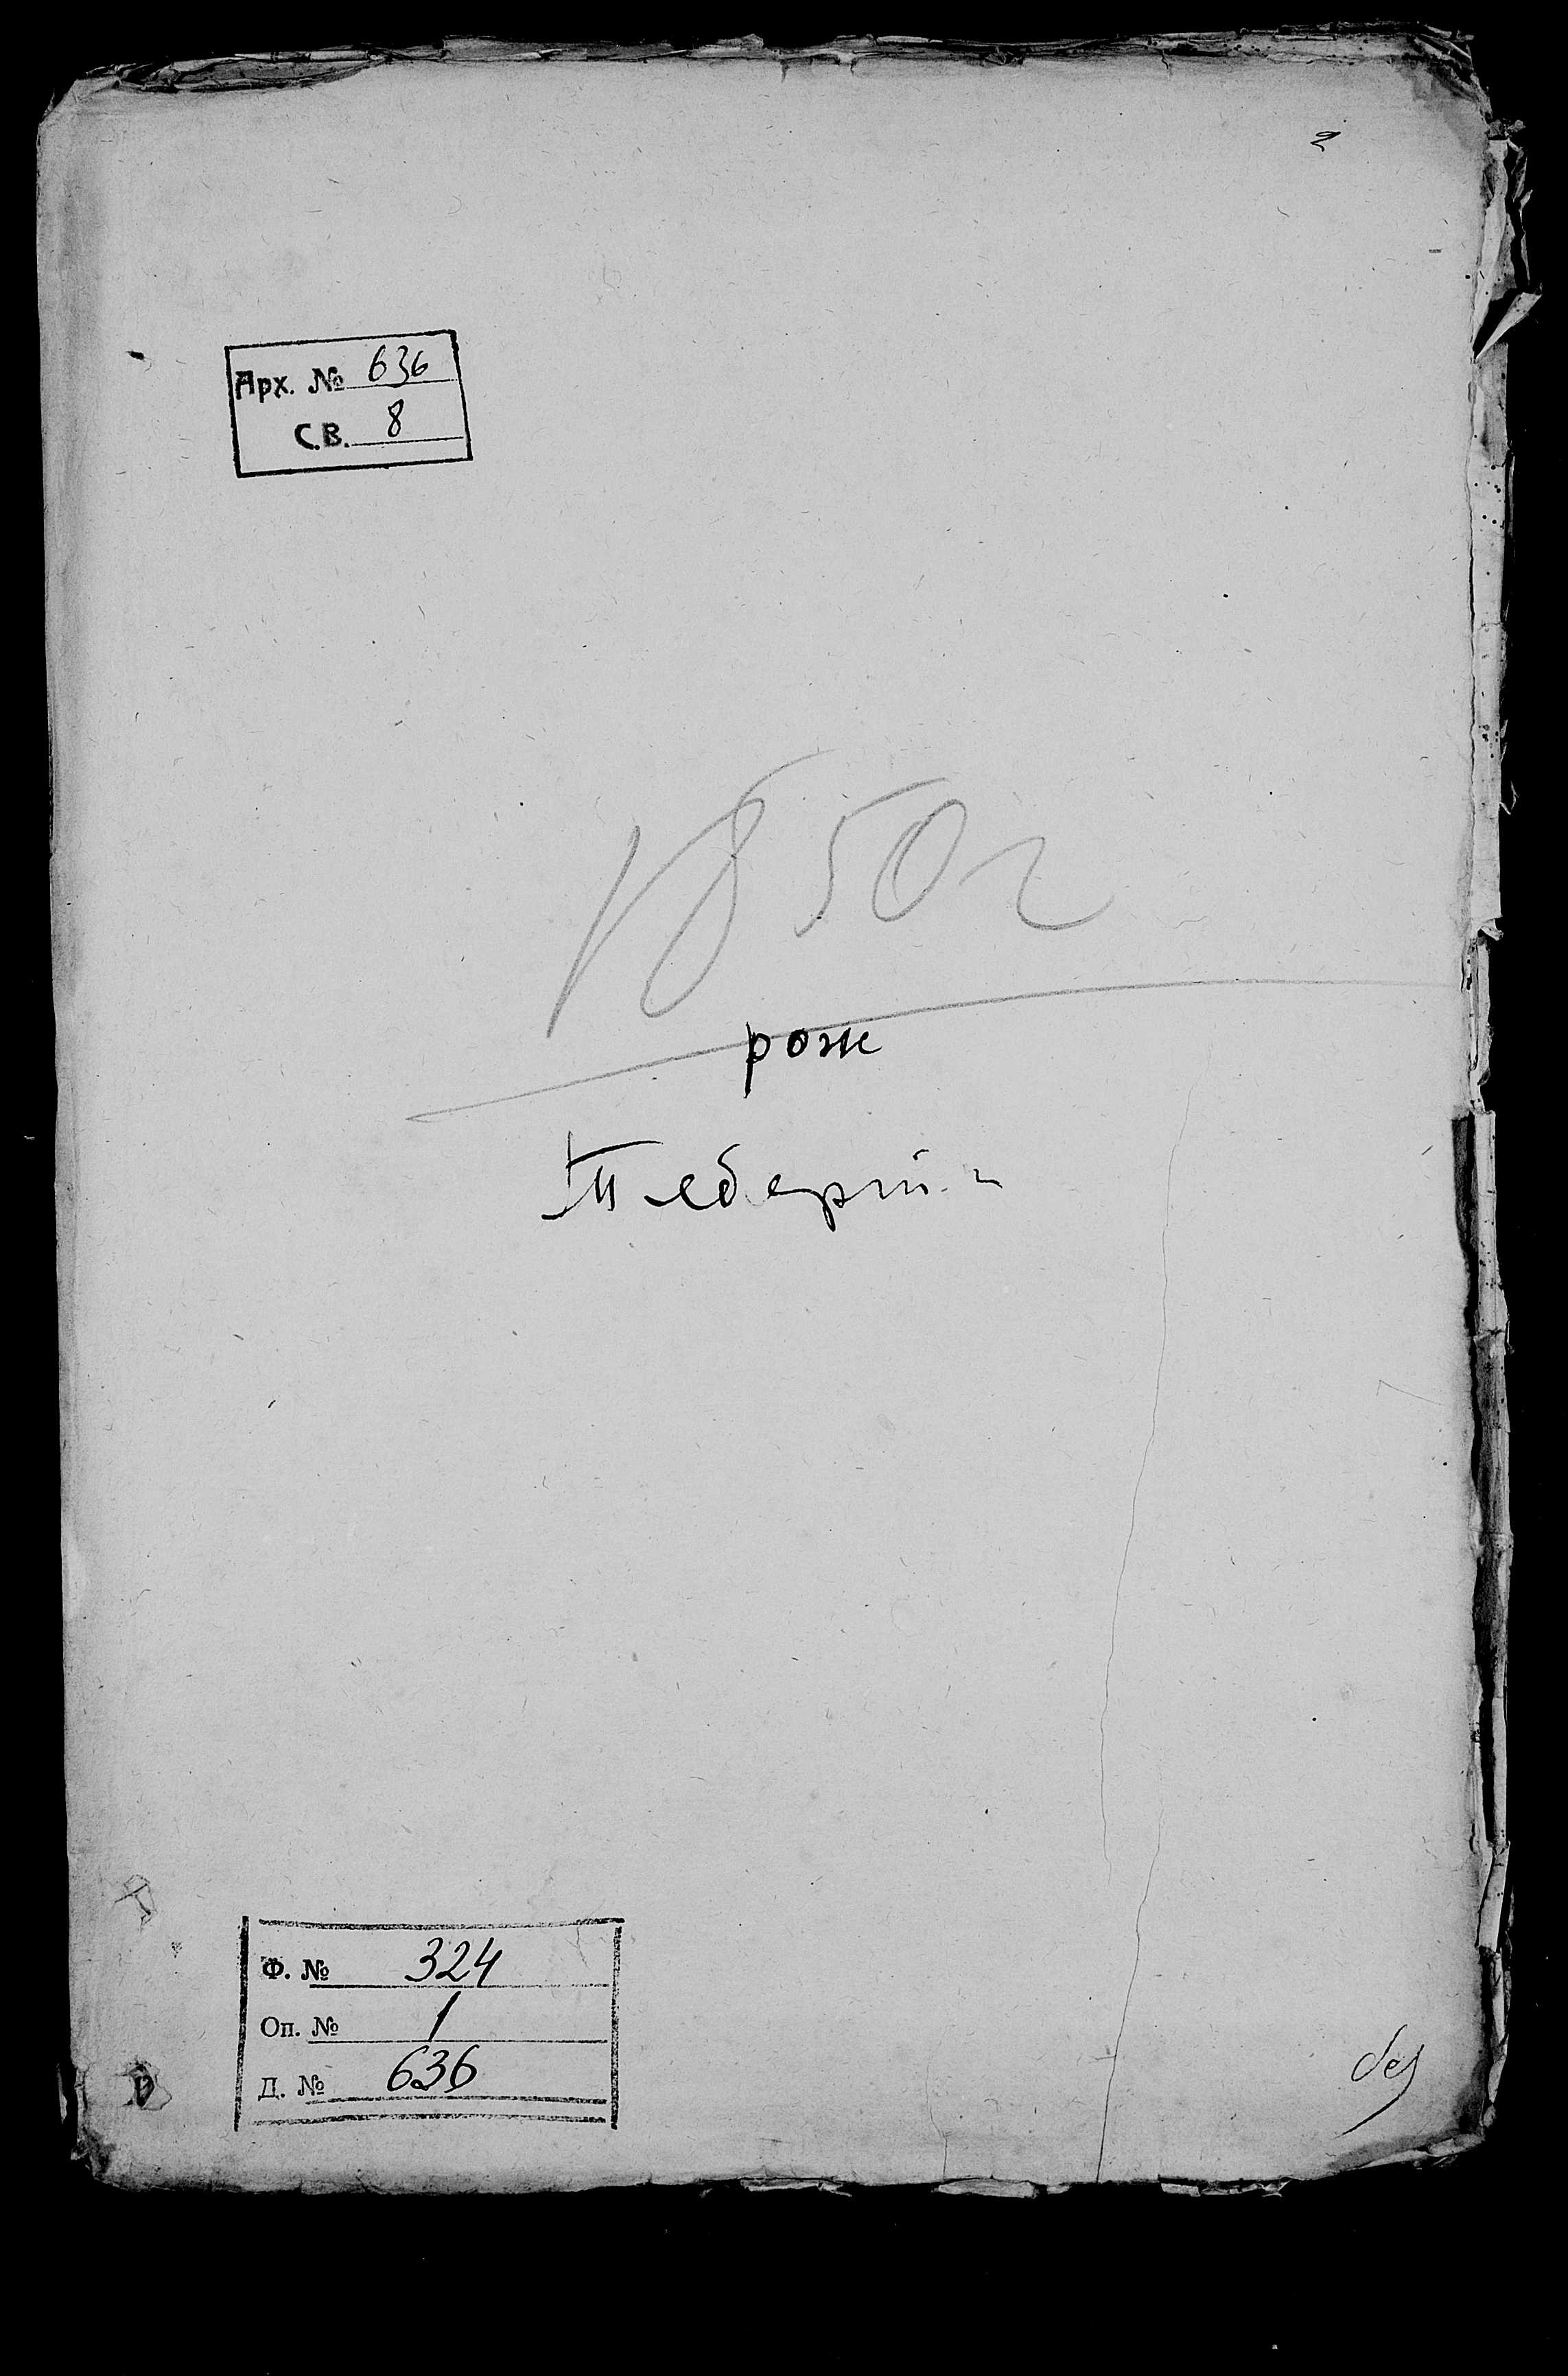 2
Арх. № 636
С.В. 8
1850г
рож
Ф. № 324
Оп. № 1
Д. № 636